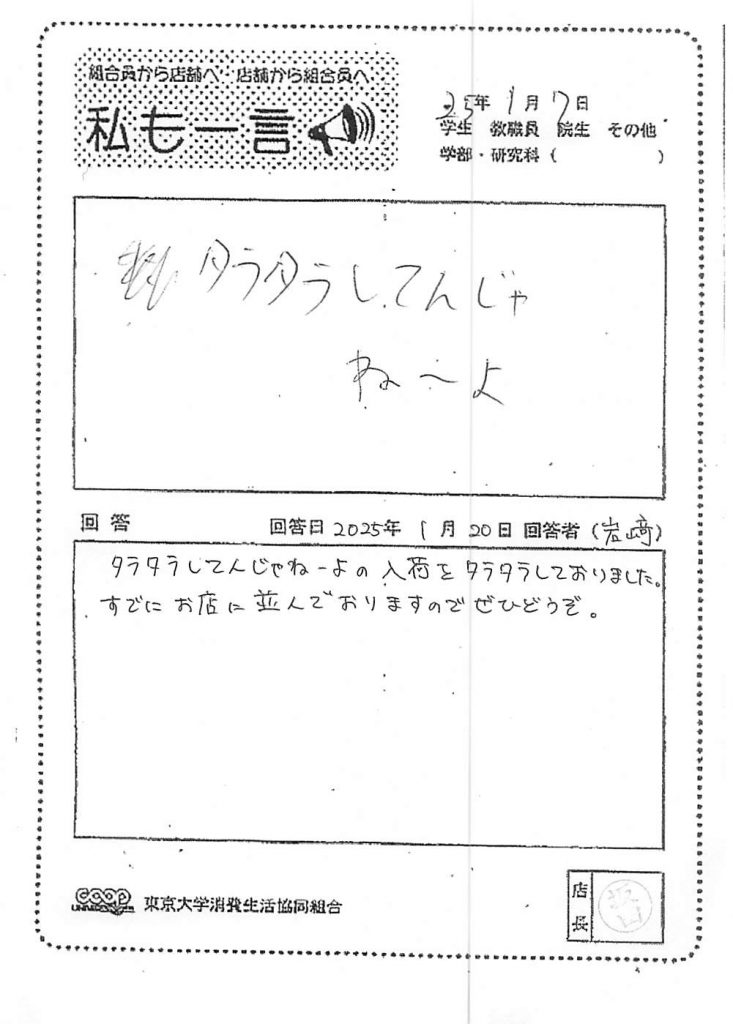 組合員から店舗へ 店舗から組合員へ
私も一言
25年 1月 17日
学生 教職員 院生 その他
学部・研究科( )
タラタラしてんじゃ
ね〜よ
回答
回答日 2025年 1月 20日 回答者(岩﨑)
タラタラしてんじゃねーよの入荷をタラタラしておりました。
すでにお店に並んでおりますのでぜひどうぞ。
COOP
東京大学消費生活協同組合
店長